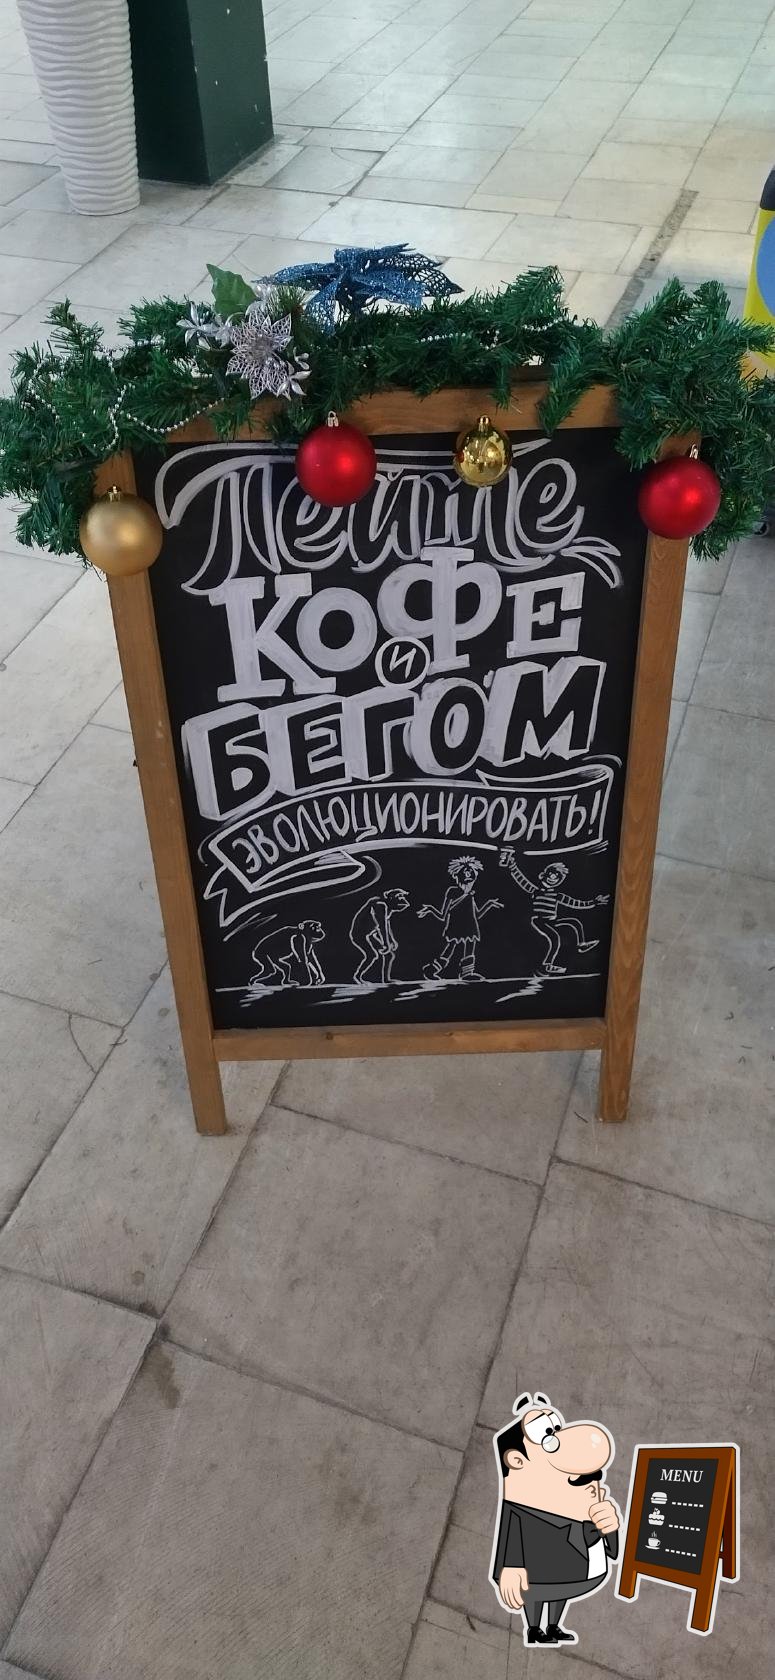 Пейте
КОФЕ
И
БЕГОМ
ЭВОЛЮЦИОНИРОВАТЬ!
MENU